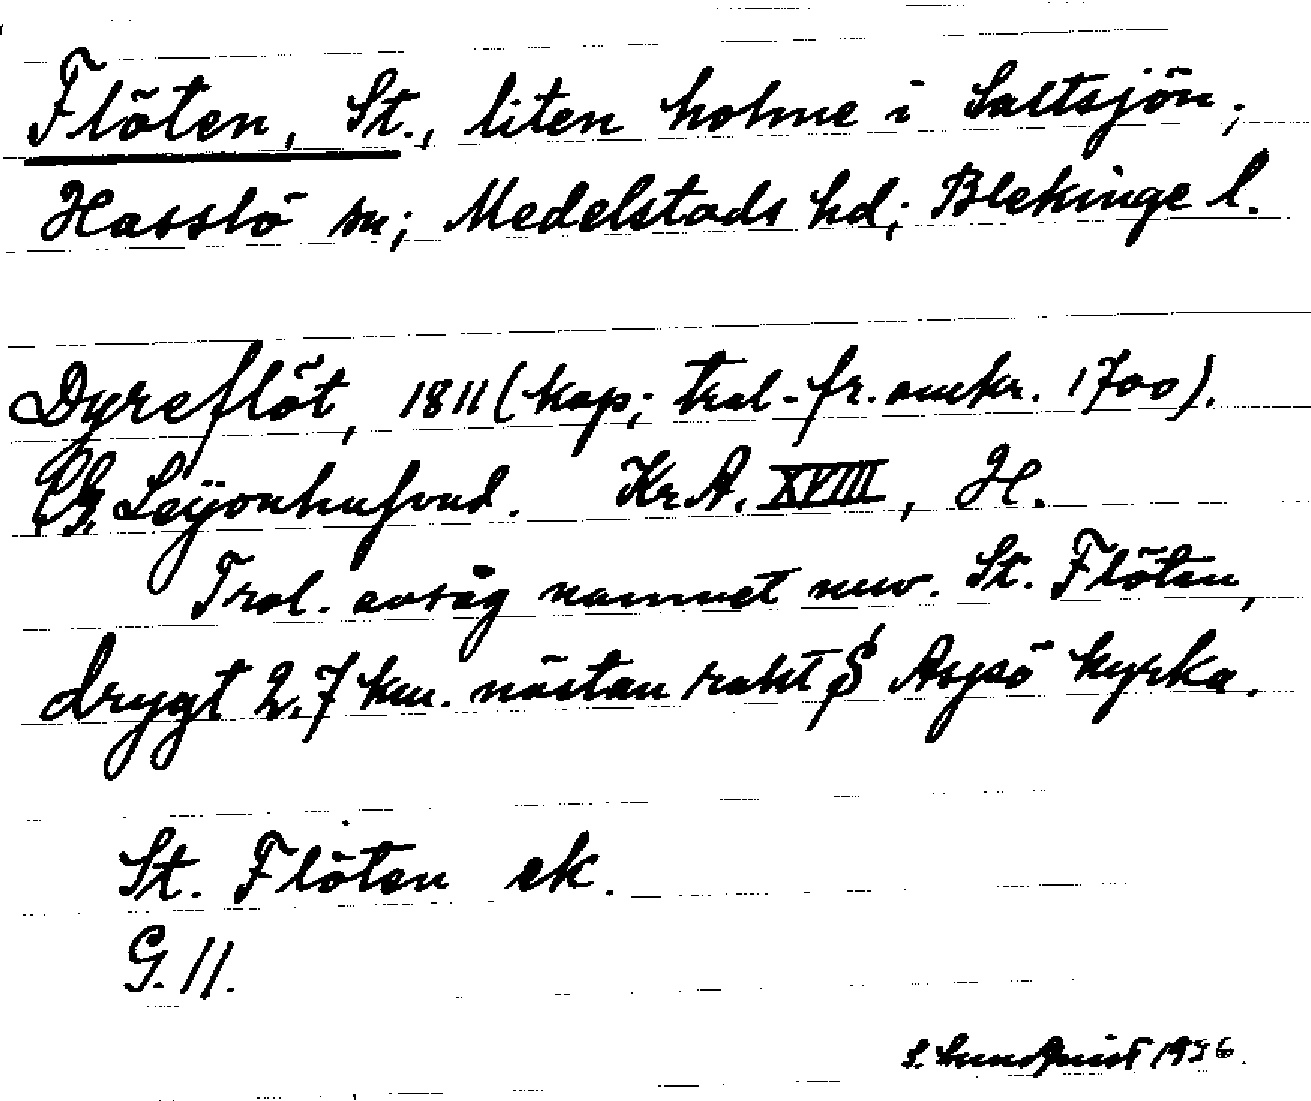 Flöten, St., liten holme i Saltsjön;
Hasslö sn; Medelstads hd; Blekinge l.
Dyreflöt, 1811 (kop; trol. fr. omkr. 1700).
C.G. Leÿonhufvud. KrA. XVIII, H.
Trol. avsåg namnet nuv. St. Flöten,
drygt 2,7 km. nästan rakt S Aspö kyrka.
St. Flöten ek.
G. 11.
S. Lundquist 1956.